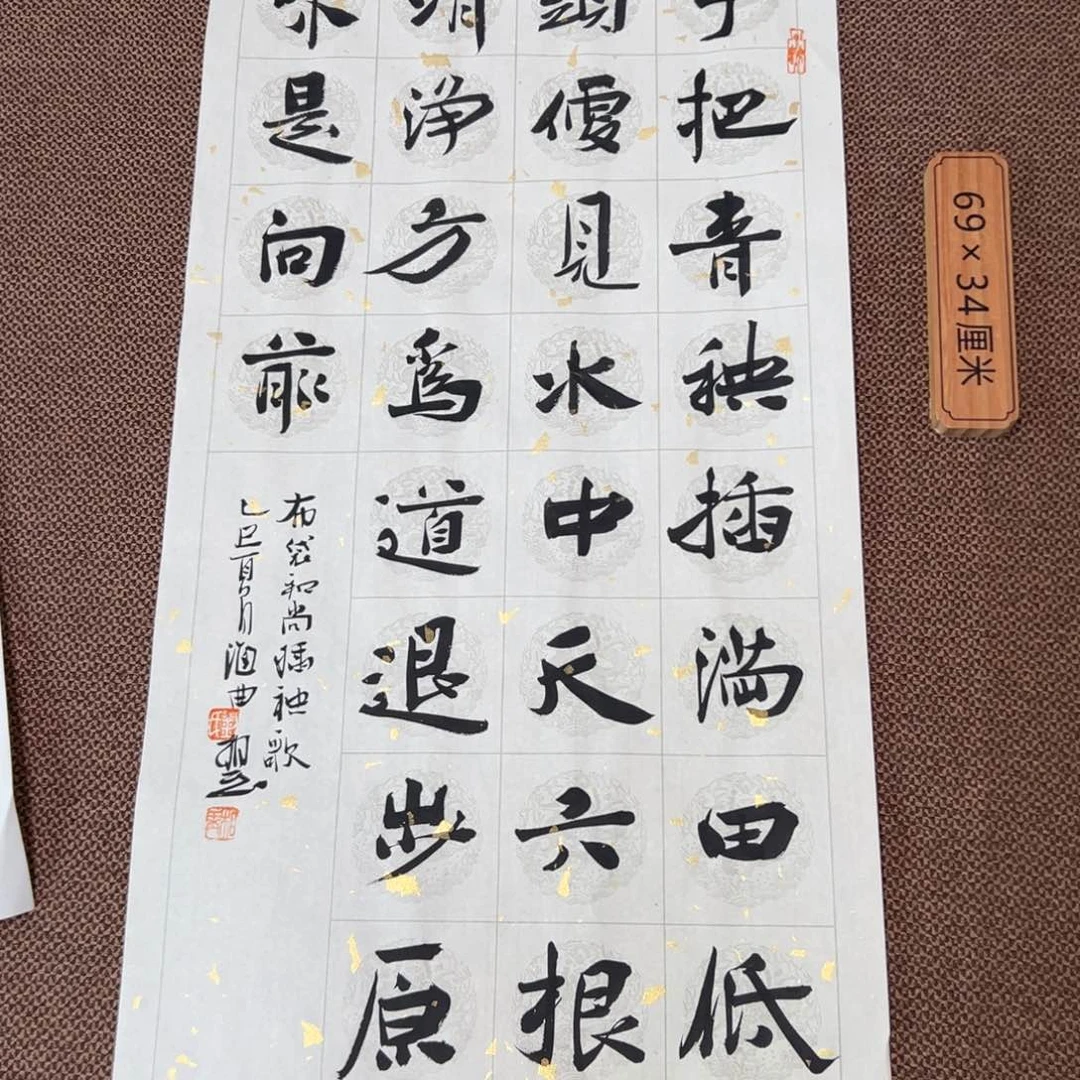 把青秧插滿田低
頭便見水中天六根
清浄方為道退步原
来是向前
布袋和尚插秧歌
乙巳夏月海曲
69×34厘米